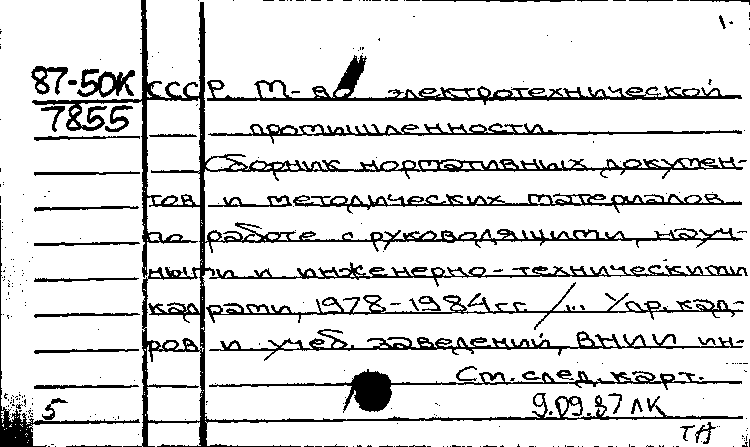 1.
87-50К СССР. М-во электротехнической
7855 промышленности.
Сборник нормативных докумен-
тов и методических материалов
по работе с руководящими, науч-
ными и инженерно-техническими
кадрами, 1978-1984 гг. /... Упр. кад-
ров и учеб. заведений, ВНИИ ин-
См. след. карт.
5 9.09.87 ЛК
ТА